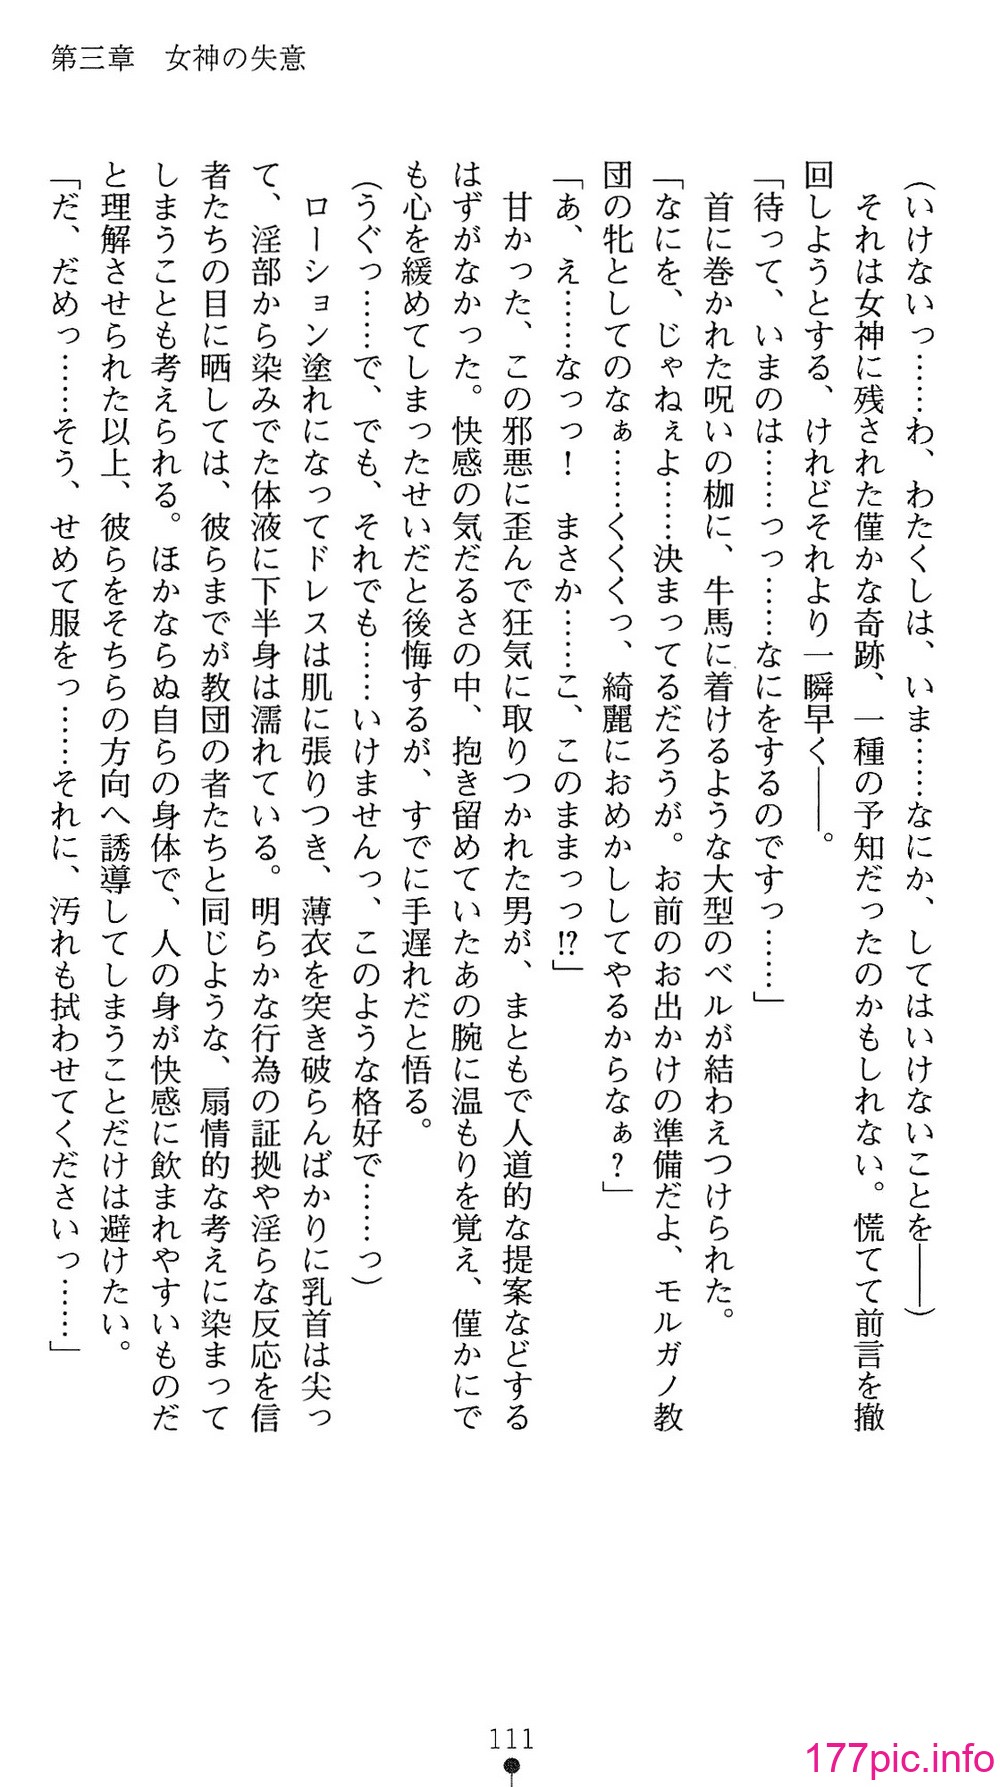 第三章　女神の失意
（いけないっ……わ、わたくしは、いま……なにか、してはいけないことを――）
　それは女神に残された僅かな奇跡、一種の予知だったのかもしれない。慌てて前言を撤
回しようとする、けれどそれより一瞬早く――。
「待って、いまのは……っっ……なにをするのですっ……」
　首に巻かれた呪いの枷に、牛馬に着けるような大型のベルが結わえつけられた。
「なにを、じゃねぇよ……決まってるだろうが。お前のお出かけの準備だよ、モルガノ教
団の牝としてのなぁ……くくくっ、綺麗におめかししてやるからなぁ？」
「あ、え……なっっ！　まさか……こ、このままっっ!?」
　甘かった、この邪悪に歪んで狂気に取りつかれた男が、まともで人道的な提案などする
はずがなかった。快感の気だるさの中、抱き留めていたあの腕に温もりを覚え、僅かにで
も心を緩めてしまったせいだと後悔するが、すでに手遅れだと悟る。
（うぐっ……で、でも、それでも……いけませんっ、このような格好で……っ）
　ローション塗れになってドレスは肌に張りつき、薄衣を突き破らんばかりに乳首は尖っ
て、淫部から染みでた体液に下半身は濡れている。明らかな行為の証拠や淫らな反応を信
者たちの目に晒しては、彼らまでが教団の者たちと同じような、扇情的な考えに染まって
しまうことも考えられる。ほかならぬ自らの身体で、人の身が快感に飲まれやすいものだ
と理解させられた以上、彼らをそちらの方向へ誘導してしまうことだけは避けたい。
「だ、だめっ……そう、せめて服をっ……それに、汚れも拭わせてくださいっ……」
111
177pic.info